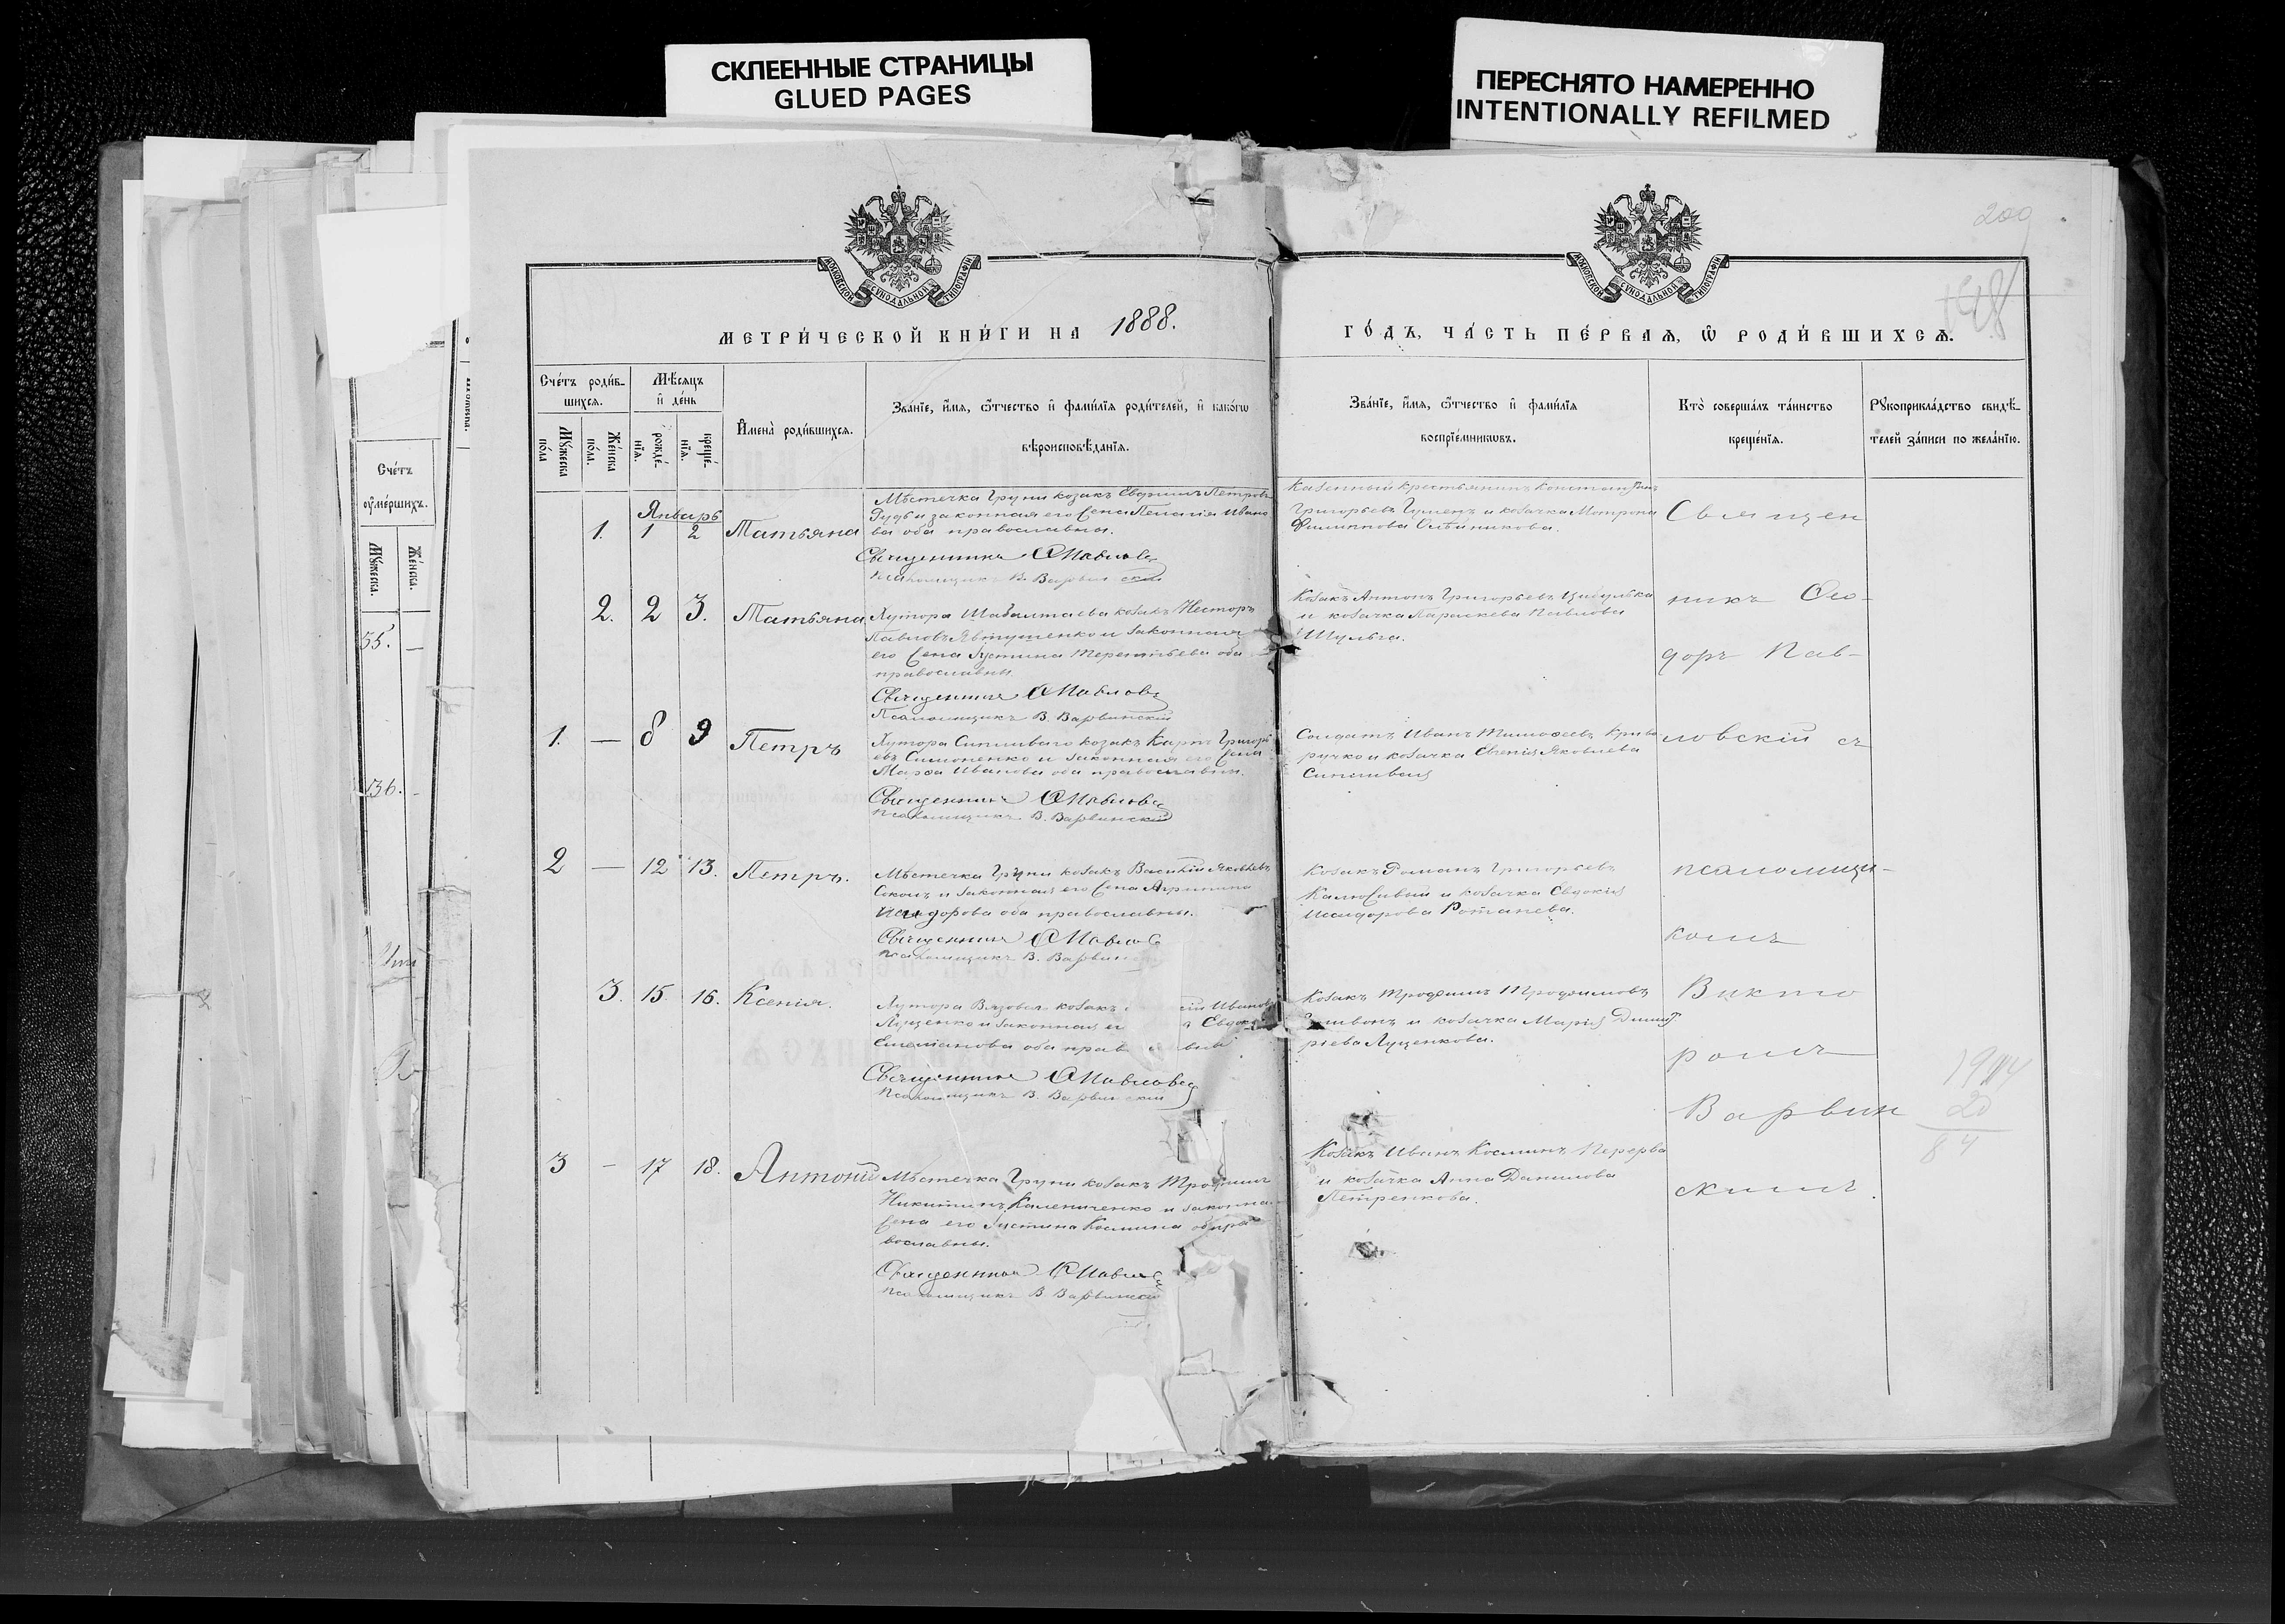 СКЛЕЕННЫЕ СТРАНИЦЫ
GLUED PAGES
ПЕРЕСНЯТО НАМЕРЕННО
INTENTIONALLY REFILMED
200
МОСКОВСКОЙ СѴНОДАЛЬНОЙ ТИПОГРАФІИ
МОСКОВСКОЙ СѴНОДАЛЬНОЙ ТИПОГРАФІИ
МЕТРИ́ЧЕСКОЙ КНИ́ГИ НА 1888.
ГО́ДЪ, ЧА́СТЬ ПЕ́РВАѦ, Ѡ҆ РОДИ́ВШИХСѦ.
Сче́тъ роди́в-
шихсѧ.
Мꙋ́жеска
по́ла
Же́нска
по́ла.
Мѣ́сѧцъ
и҆ де́нь
рожде́-
нїѧ.
креще́-
нїѧ.
И҆мена̀ роди́вшихсѧ.
Зва́нїе, и҆́мѧ, ѻ҆́тчество и҆ фами́лїѧ роди́телей, и҆ како́гѡ
вѣроисповѣ́данїѧ.
Зва́нїе, и҆́мѧ, ѻ҆́тчество и҆ фами́лїѧ
воспрїе́мникѡвъ.
Кто̀ соверша́лъ та́инство
креще́нїѧ.
Рꙋкоприкла́дство свидѣ́-
телей за́писи по жела́нїю.
Сче́тъ
ᲂу҆ме́ршихъ.
Мꙋ́жеска.
Же́нска.
55. —
136.
Январь
1. 1 2 Татьяна
Мѣстечка Груни козакъ Евфимъ Петровъ
Гудь и законная его жена Пелагія Ивано
ва оба православны.
Священникъ Ѳ Павловс
Псаломщикъ В. Варвинскій
Казенный крестьянинъ Константинъ
Григорьевъ Гуменъ и козачка Мотрона
Филиппова Олѣйникова.
2. 2 3. Татьяна
Хутора Шабалтаева козакъ Несторъ
Павловъ Явтушенко и законная
его жена Іустина Терентьева оба
православны
Священникъ Ѳ Павловс
Псаломщикъ В. Варвинскій
Козакъ Антонъ Григорьевъ Цибулька
и козачка Параскева Павлова
Шульга.
1. — 8 9 Петръ
Хутора Сипливаго козакъ Карпъ Григорь
евъ Симоненко и законная его жена
Марѳа Иванова оба православны.
Священникъ Ѳ Павловс
Псаломщикъ В. Варвинскій
Солдатъ Иванъ Тимоѳеевъ Криво
ручко и козачка Евгенія Яковлева
Сипливая
2 — 12 13. Петръ.
Мѣстечка Груни козакъ Василій Яковлевъ
Соколъ и законная его жена Агрипина
Исидорова оба православны.
Священникъ Ѳ Павлов
Псаломщикъ В. Варвин
Козакъ Романъ Григорьевъ
Калюжный и козачка Евдокія
Исидорова Ротанева.
3. 15. 16. Ксенія.
Хутора Вязовая козакъ Иванов
Луценко и законная Евдокі
Емеліанова оба прав
Священникъ Ѳ Павловс
Псаломщикъ В. Варвинскій
Козакъ Трофимъ Трофимовъ
и козачка Марія Димит
ріева Луценкова.
3 — 17 18. Антоній
Мѣстечка Груни козакъ Трофимъ
Никитинъ Калениченко и законна
жена его Іустина Космина оба пра
вославны.
Священникъ Ѳ Павлов
Псаломщикъ В Варвинскій
Козакъ Иванъ Косминъ Перерва
и козачка Анна Данилова
Петренкова.
Священ
никъ Ѳео-
доръ Пав-
ловскій съ
псаломщи-
комъ
Викто
ромъ
Варвин
скимъ.
20
84